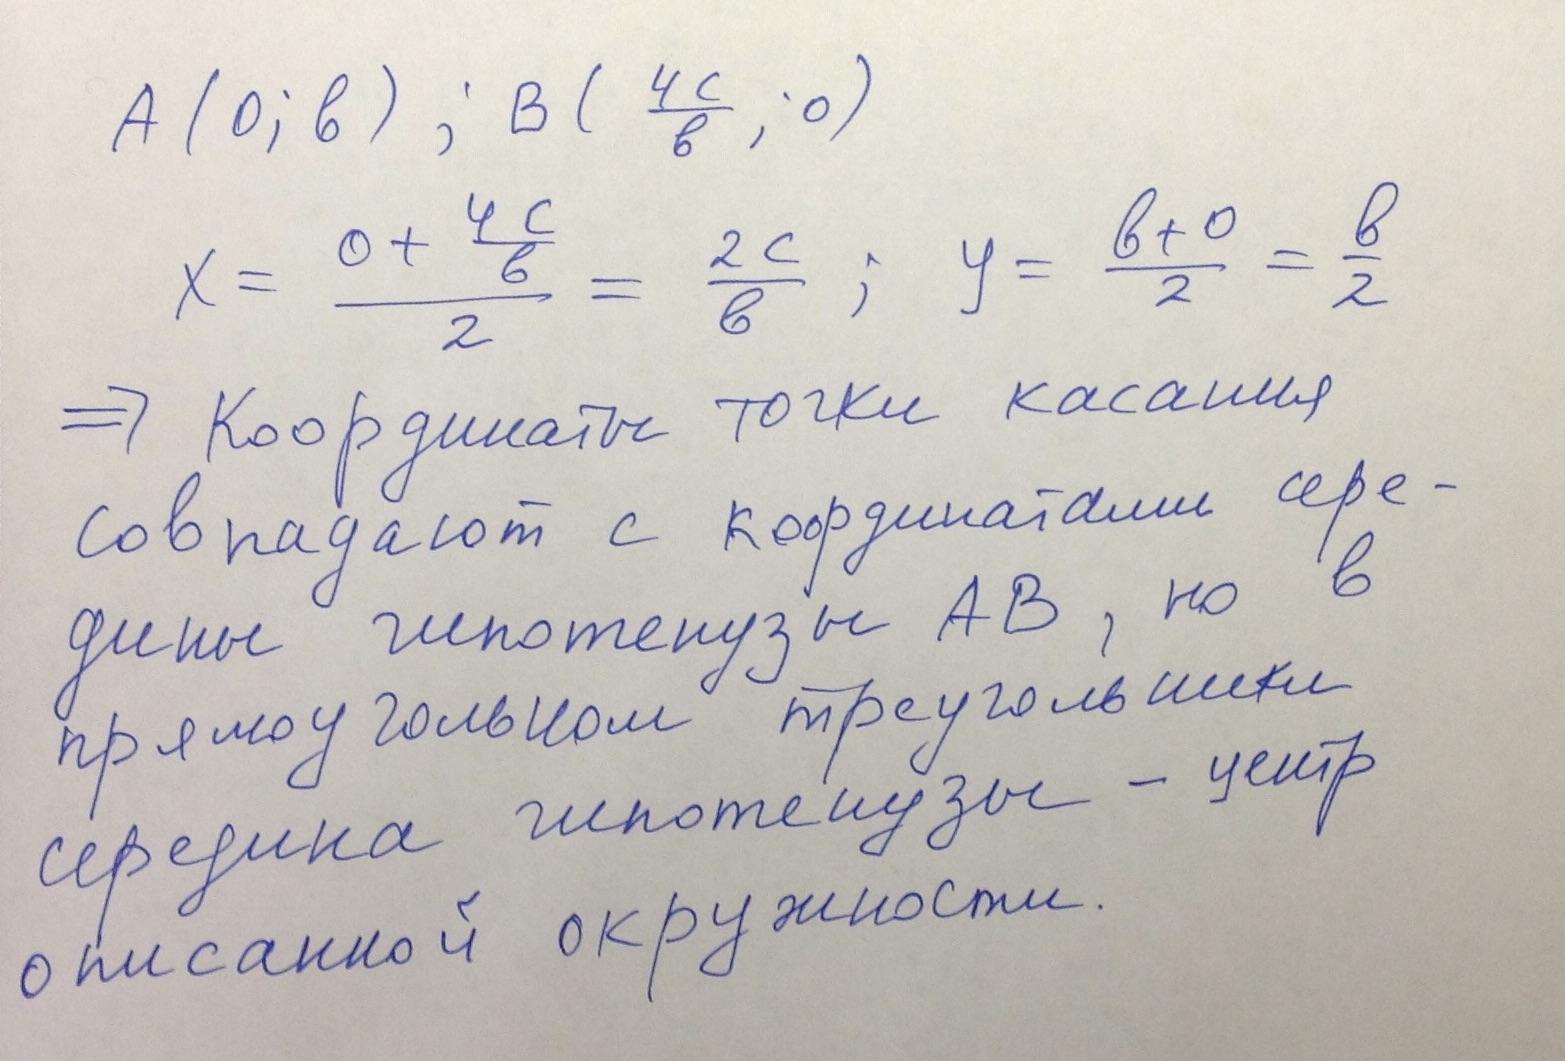 A(0;в); B(4c/в;0)
x = (0 + 4c/в)/2 = 2c/в; y = (в+0)/2 = в/2
⇒ Координаты точки касания
совпадают с координатами сере-
дины гипотенузы AB, но в
прямоугольном треугольники
середина гипотенузы - центр
описанной окружности.